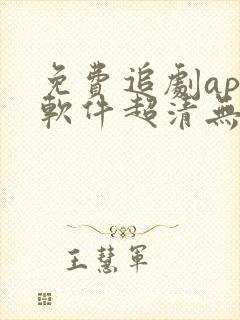 免費追劇ap
軟件超清無
王慧軍